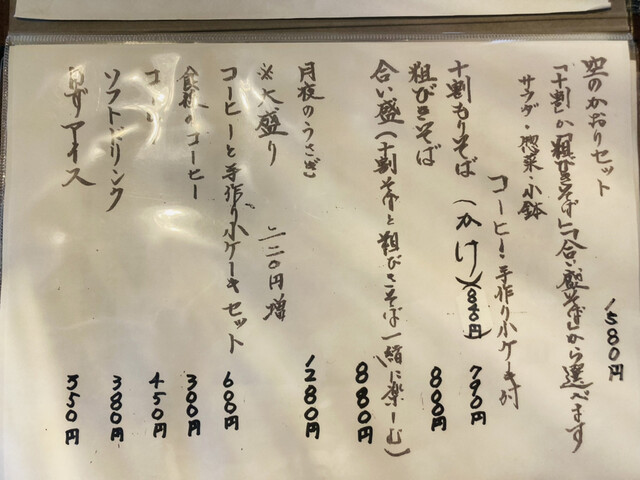 空のかおりセット 1580円
「十割」か「粗びきそば」「合い盛そば」から選べます
サラダ・惣菜・小鉢
コーヒー・手作り小ケーキ付
十割もりそば(かけ)(880円) 790円
粗びきそば 800円
合い盛(十割そばと粗びきそば一緒に楽しむ) 880円
月夜のうさぎ 1280円
※大盛り 二二〇円増
コーヒーと手作り小ケーキセット 600円
食後のコーヒー 300円
コーヒー 450円
ソフトドリンク 380円
アイス 350円